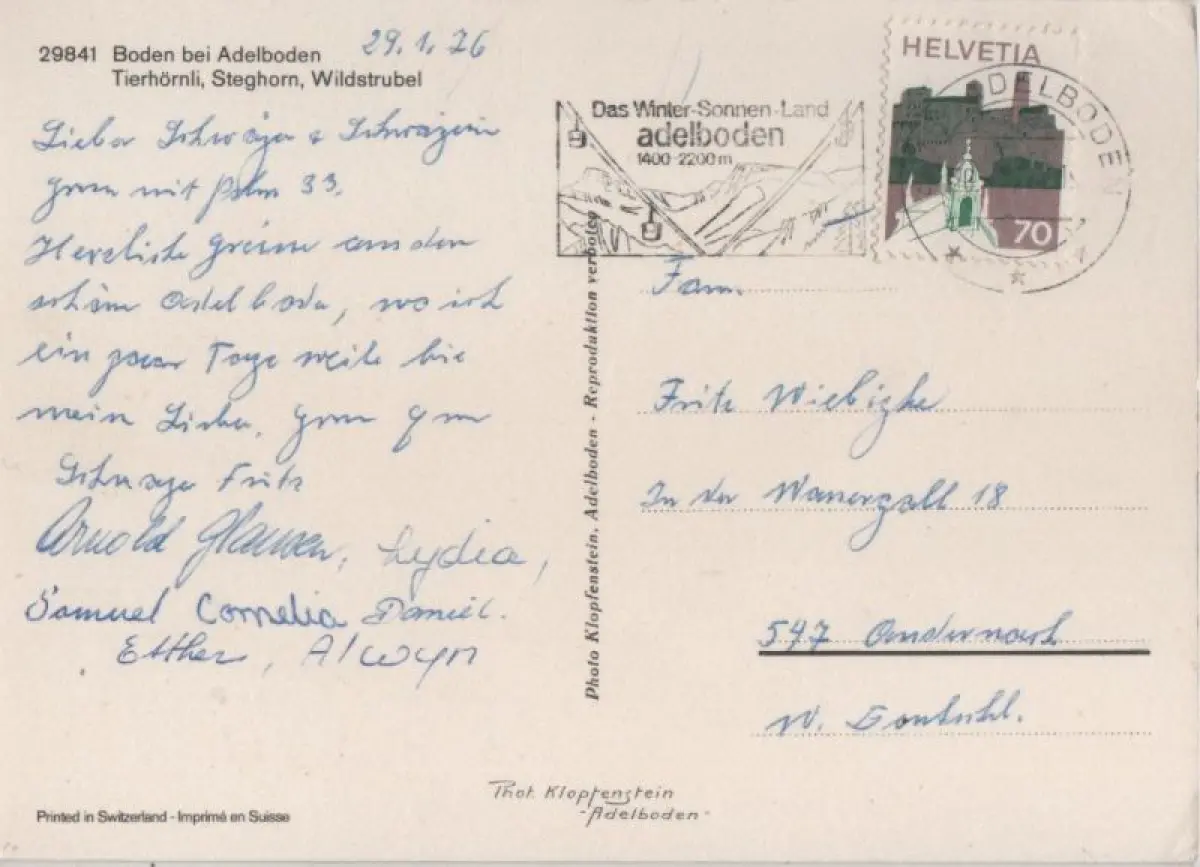 29841 Boden bei Adelboden
Tierhörnli, Steghorn, Wildstrubel
29.1.76
Lieber Schwager + Schwägerin
mit Psalm 33.
Herzliche Grüsse aus dem
schönen Adelboden, wo ich
ein paar Tage weile
Schwager Fritz
Arnold Lydia,
Samuel Cornelia Daniel.
Esther, Alwyn
Das Winter-Sonnen-Land
adelboden
1400-2200m
HELVETIA
70
ADELBODEN
Fam.
Fritz Wiebizke
In der 18
547 Andernach
W.
Photo Klopfenstein, Adelboden - Reproduktion verboten
Phot. Klopfenstein
-Adelboden-
Printed in Switzerland - Imprimé en Suisse